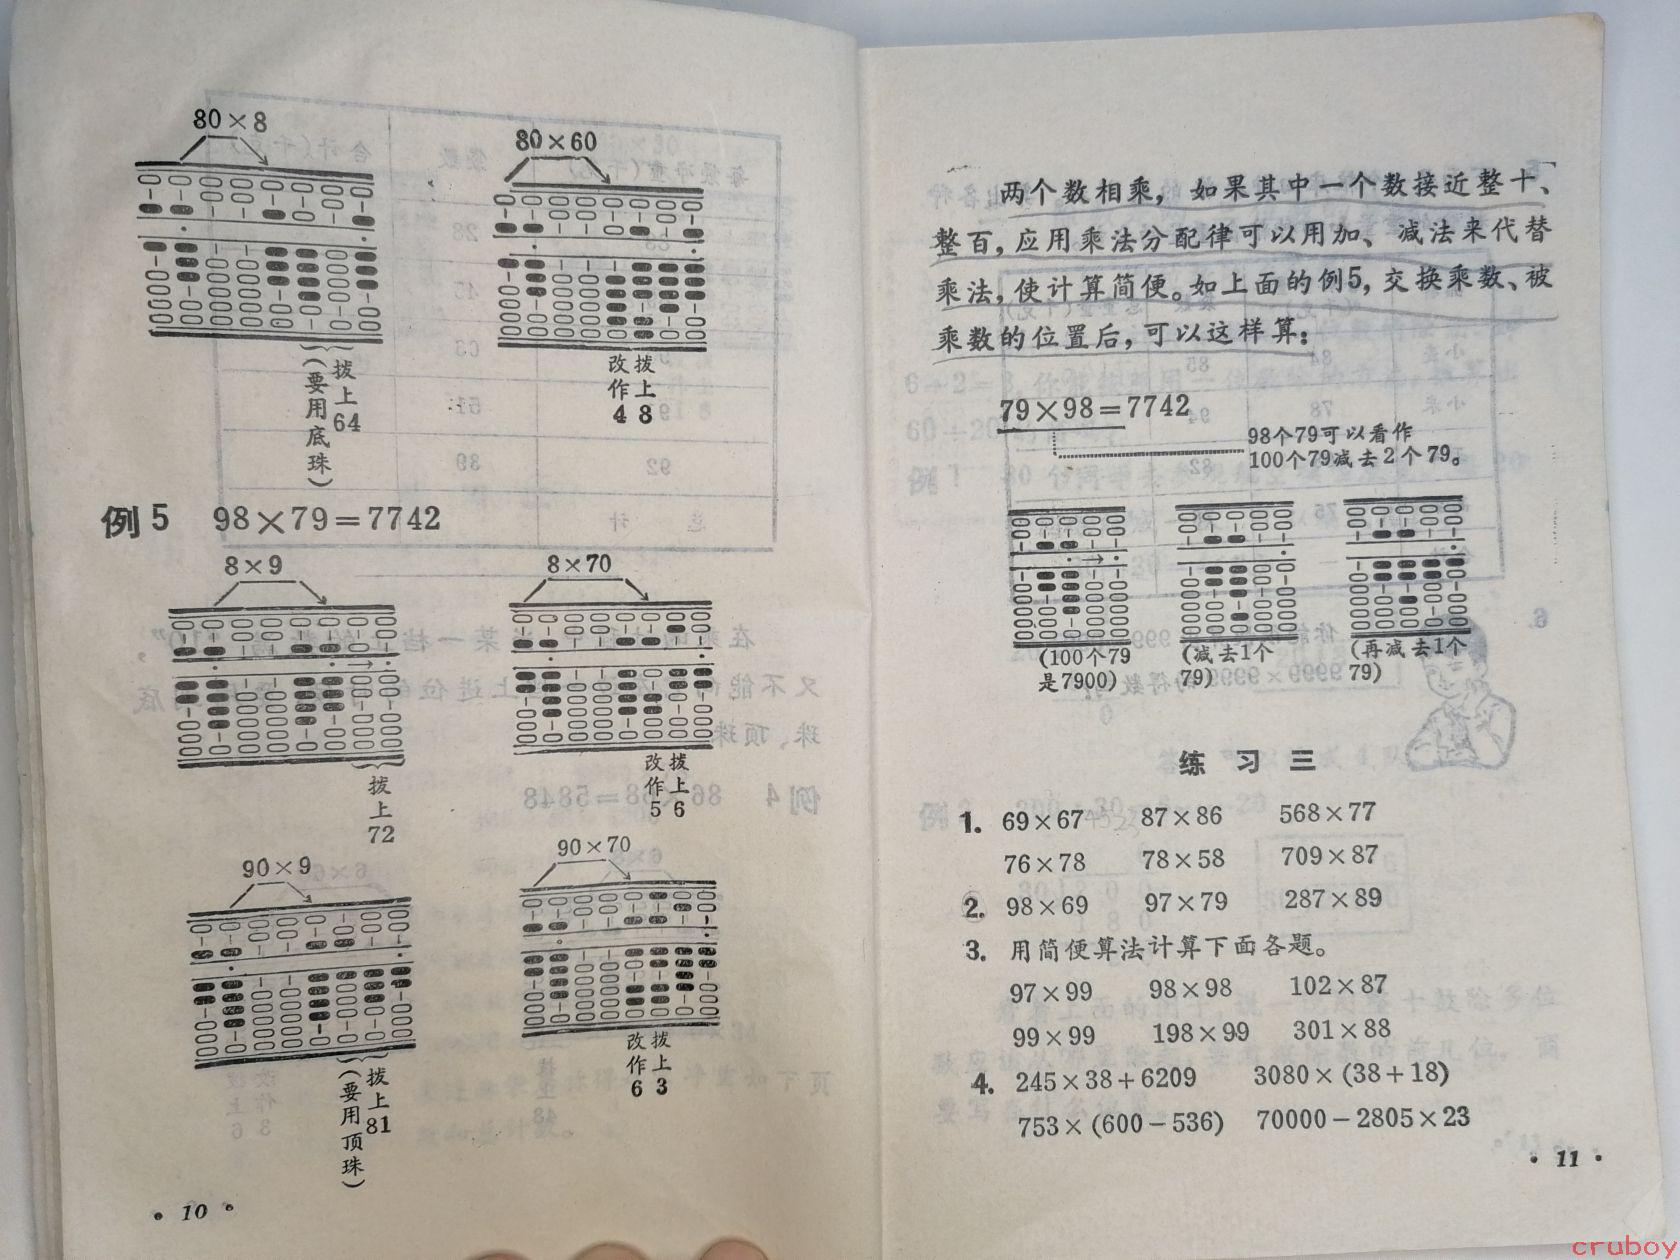 80×8
80×60
拨上64
(要用底珠)
改作4
拨上8
例5 98×79=7742
8×9
8×70
拨上72
改作5
拨上6
90×9
90×70
拨上81
(要用顶珠)
改作6
拨上3
· 10 ·
两个数相乘，如果其中一个数接近整十、
整百，应用乘法分配律可以用加、减法来代替
乘法，使计算简便。如上面的例5，交换乘数、被
乘数的位置后，可以这样算：
79×98=7742
98个79可以看作
100个79减去2个79。
(100个79
是7900)
(减去1个
79)
(再减去1个
79)
练习三
1. 69×67 87×86 568×77
76×78 78×58 709×87
2. 98×69 97×79 287×89
3. 用简便算法计算下面各题。
97×99 98×98 102×87
99×99 198×99 301×88
4. 245×38+6209 3080×(38+18)
753×(600-536) 70000-2805×23
· 11 ·
cruboy